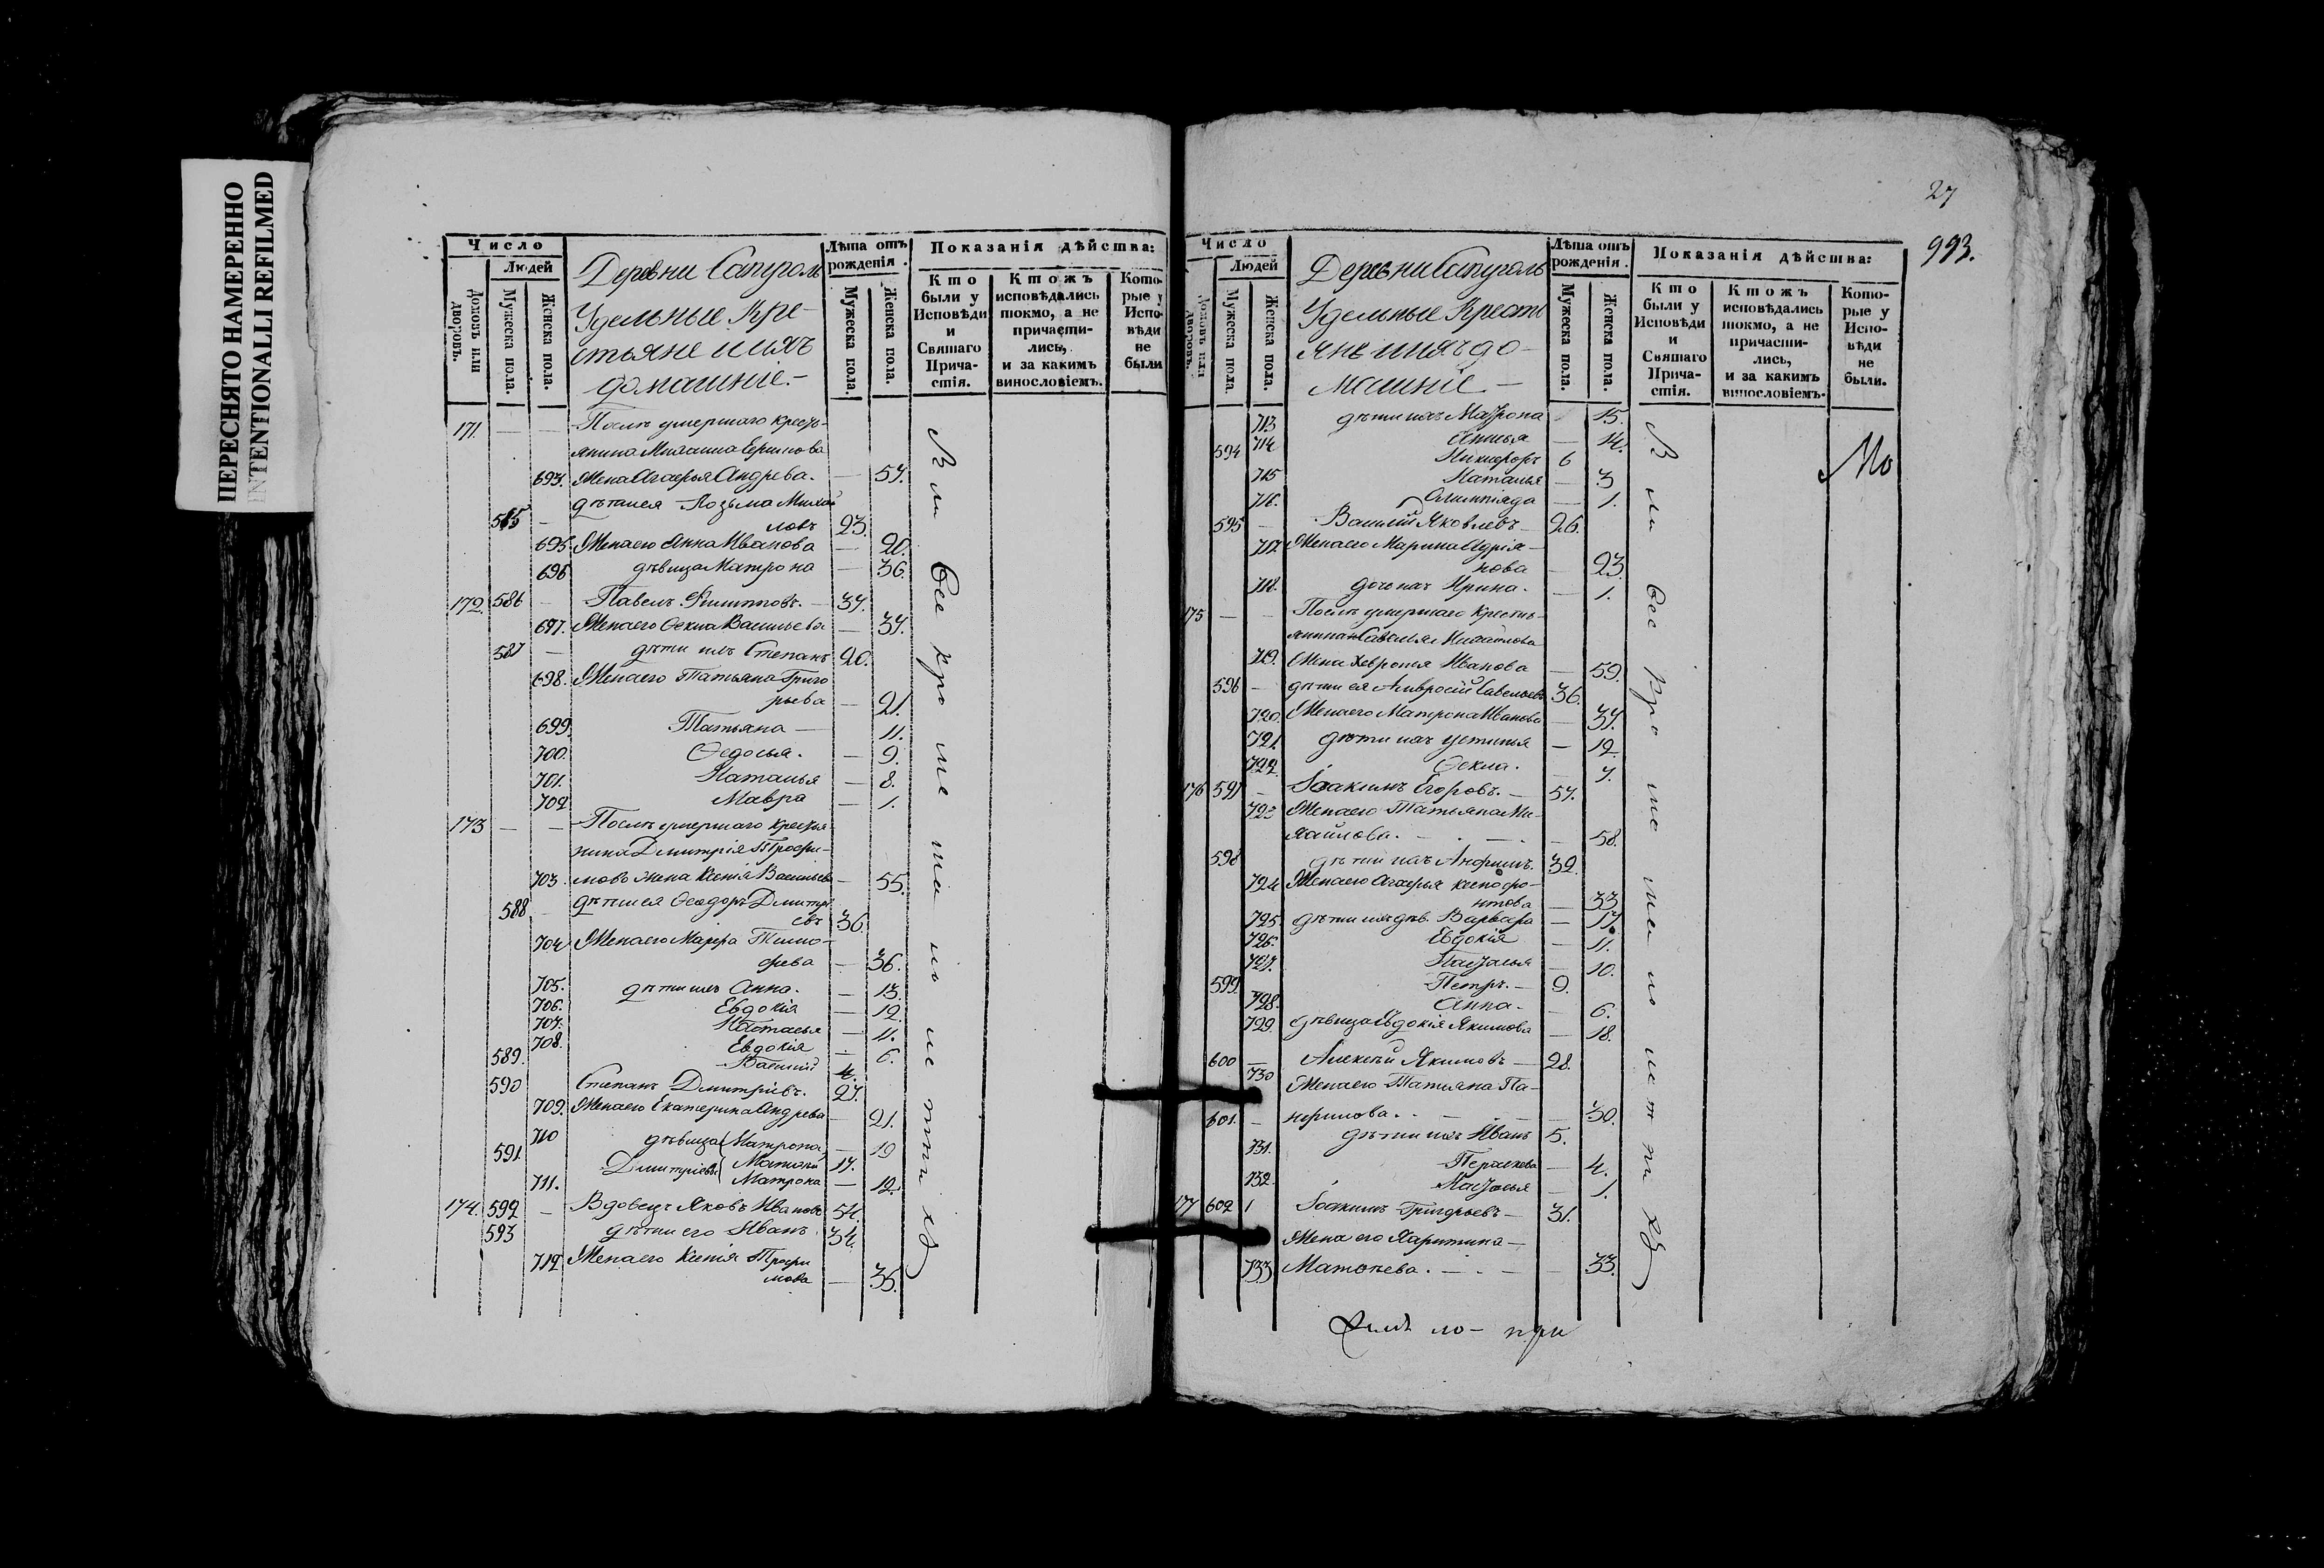 ПЕРЕСНЯТО НАМЕРЕННО
INTENTIONALLI REFILMED
27
993.
Число
Людей
Домовъ или дворовъ.
Мужеска пола.
Женска пола.
Деревни Сапуголь
Удельные Кре-
стьяне и ихъ
домашніе.-
Лѣта отъ рожденія.
Мужеска пола.
Женска пола.
Показанія дѣйства:
Кто были у Исповѣди и Святаго Прича-стія.
Ктожъ исповѣдались токмо, а не причасти-лись, и за какимъ винословіемъ.
Кото-рые у Испо-вѣди не были
171. — — Послѣ умершаго кресть-
янина
693. Жена Агафья Андрева. — 57.
дѣти ея Козьма Михай
585 — ловъ 23.
695 Жена его Анна Иванова — 20.
696 дѣвица Матрона — 36.
172. 586 — Павелъ Филиповъ. — 37.
697. Жена его Ѳекла Васильева — 37.
587 — дѣти ихъ Степанъ 20.
698. Жена его Татьяна Григо
рьева — 21.
699. Татьяна — 11.
700. Ѳедосья. — 9.
701. Наталья — 8.
702 Мавра — 1.
173 — — Послѣ умершаго крестья-
нина Димитрія Трофи-
703. мова жена Ксенія Васильева — 55.
дѣти ея Ѳеодоръ Дмитрі
588 — евъ 36.
704 Жена его Марѳа Тимо-
фева — 36.
705. дѣти ихъ Анна. — 13.
706. Евдокія — 12.
707. Настасья — 11.
708. Евдокія — 6.
589. Василий 4.
590 Степанъ Дмитріевъ. 27.
709. Жена его Екатерина Андрева — 21.
710 дѣвица Матрона — 19
591. Дмитріевы 17.
711. Матрона — 12.
174. 592 — Вдовецъ Яковъ Иванов 54.
593 дѣти его Иванъ. 34.
712 Жена его Ксенія Трофи
мова — 35.
Вси
Число
Людей
Домовъ или дворовъ.
Мужеска пола.
Женска пола.
Деревни Сапуголь
Удельные Кресть
янъ ихъ до-
машніе.-
Лѣта отъ рожденія.
Мужеска пола.
Женска пола.
Показанія дѣйства:
Кто были у Исповѣди и Святаго Прича-стія.
Ктожъ исповѣдались токмо, а не причасти-лись, и за какимъ винословіемъ.
Кото-рые у Испо-вѣди не были.
713 дѣти ихъ Матрона 15.
714 Анисья — 14.
594 Никифоръ 6
715 Наталья — 3
716. Олимпіада — 1.
595 — Василій Яковлевъ — 26.
717. Жена его Марина Адрія-
нова — 23.
718. дочь ихъ Ирина. — 1.
175 — — Послѣ умершаго крестья-
янина Савелья Михайлова
719. Жена Хевронья Иванова — 59.
596 — дѣти ея Амвросій Савельевъ 36.
720. Жена его Матрона Иванова — 37.
721. дѣти ихъ Устинья — 12
722. Ѳекла. 7.
176 597 — Іоакимъ Егоровъ. — 57.
723 Жена его Татьяна Ми-
хайлова. — 58.
598 дѣти ихъ Анфимъ. 32.
724 Жена его Агафья Ксенофо-
нтова — 33
725. дѣти ихъ дѣв. Варвара — 17.
726. Евдокія — 11.
727. Наталья — 10.
599. Петръ. — 9.
728. Анна. — 6.
729. дѣвица Евдокія Якимова — 18.
600 — Алексѣй Якимовъ — 28.
730 Жена его Татьяна Па-
нфилова. — 30.
601. — дѣти ихъ Иванъ 5.
731. Параскева — 4.
732. Наталья — 1.
177 602 1 Іоакимъ Григорьевъ — 31.
Жена его Харитина —
733 Матвѣева. — 33.